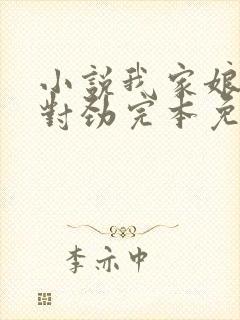 小說我家娘
對勁完本免
李亦中